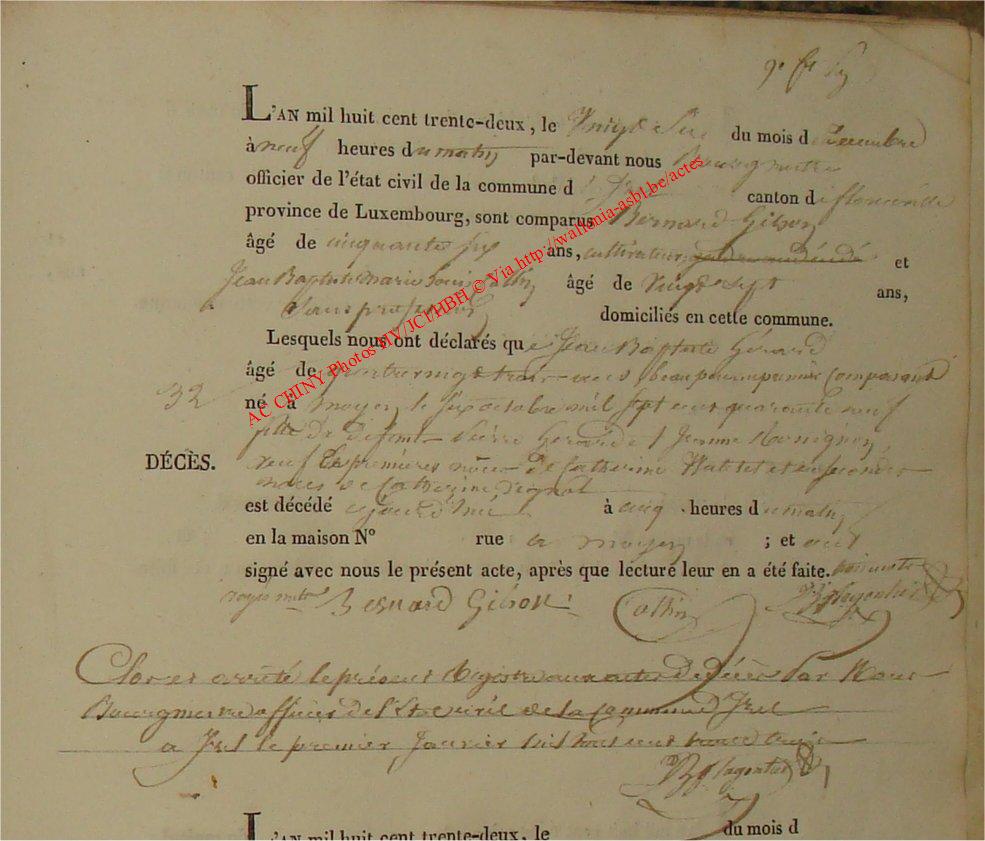 9e
L'AN mil huit cent trente-deux, le Vingt Six du mois d Decembre
à neuf heures du matin par-devant nous Bourgmestre
officier de l'état civil de la commune d canton de florenville
province de Luxembourg, sont comparus Bernard Gibon
âgé de cinquante six ans, cultivateur et
Jean Baptiste Marie Louis Collin âgé de Vingt Sept ans,
Sans profession domiciliés en cette commune.
Lesquels nous ont déclarés que Jean Baptiste Gérard
âgé de quatrevingt trois ans, beau pere du premier Comparant
32
né à moyen le six octobre mil sept cent quarante neuf
fils de défunt Pierre Gerard et Jeanne
DÉCÈS.
veuf en premieres noces de Catherine et en secondes
noces de Catherine
est décédé cejourd'hui à cinq heures du matin
en la maison No rue a moyen ; et ont
signé avec nous le présent acte, après que lecture leur en a été faite.
Bernard Gibon Collin
Clos et arrêté le présent Registre aux actes de décès Par Nous
Bourgmestre officier de l'Etat civil de la Commune d'Izel
a Izel le premier Janvier mil huit cent trente trois
L'AN mil huit cent trente-deux, le du mois d
AC CHINY Photos MY/JCI/HBH © Via http://wallonia-asbl.be/actes